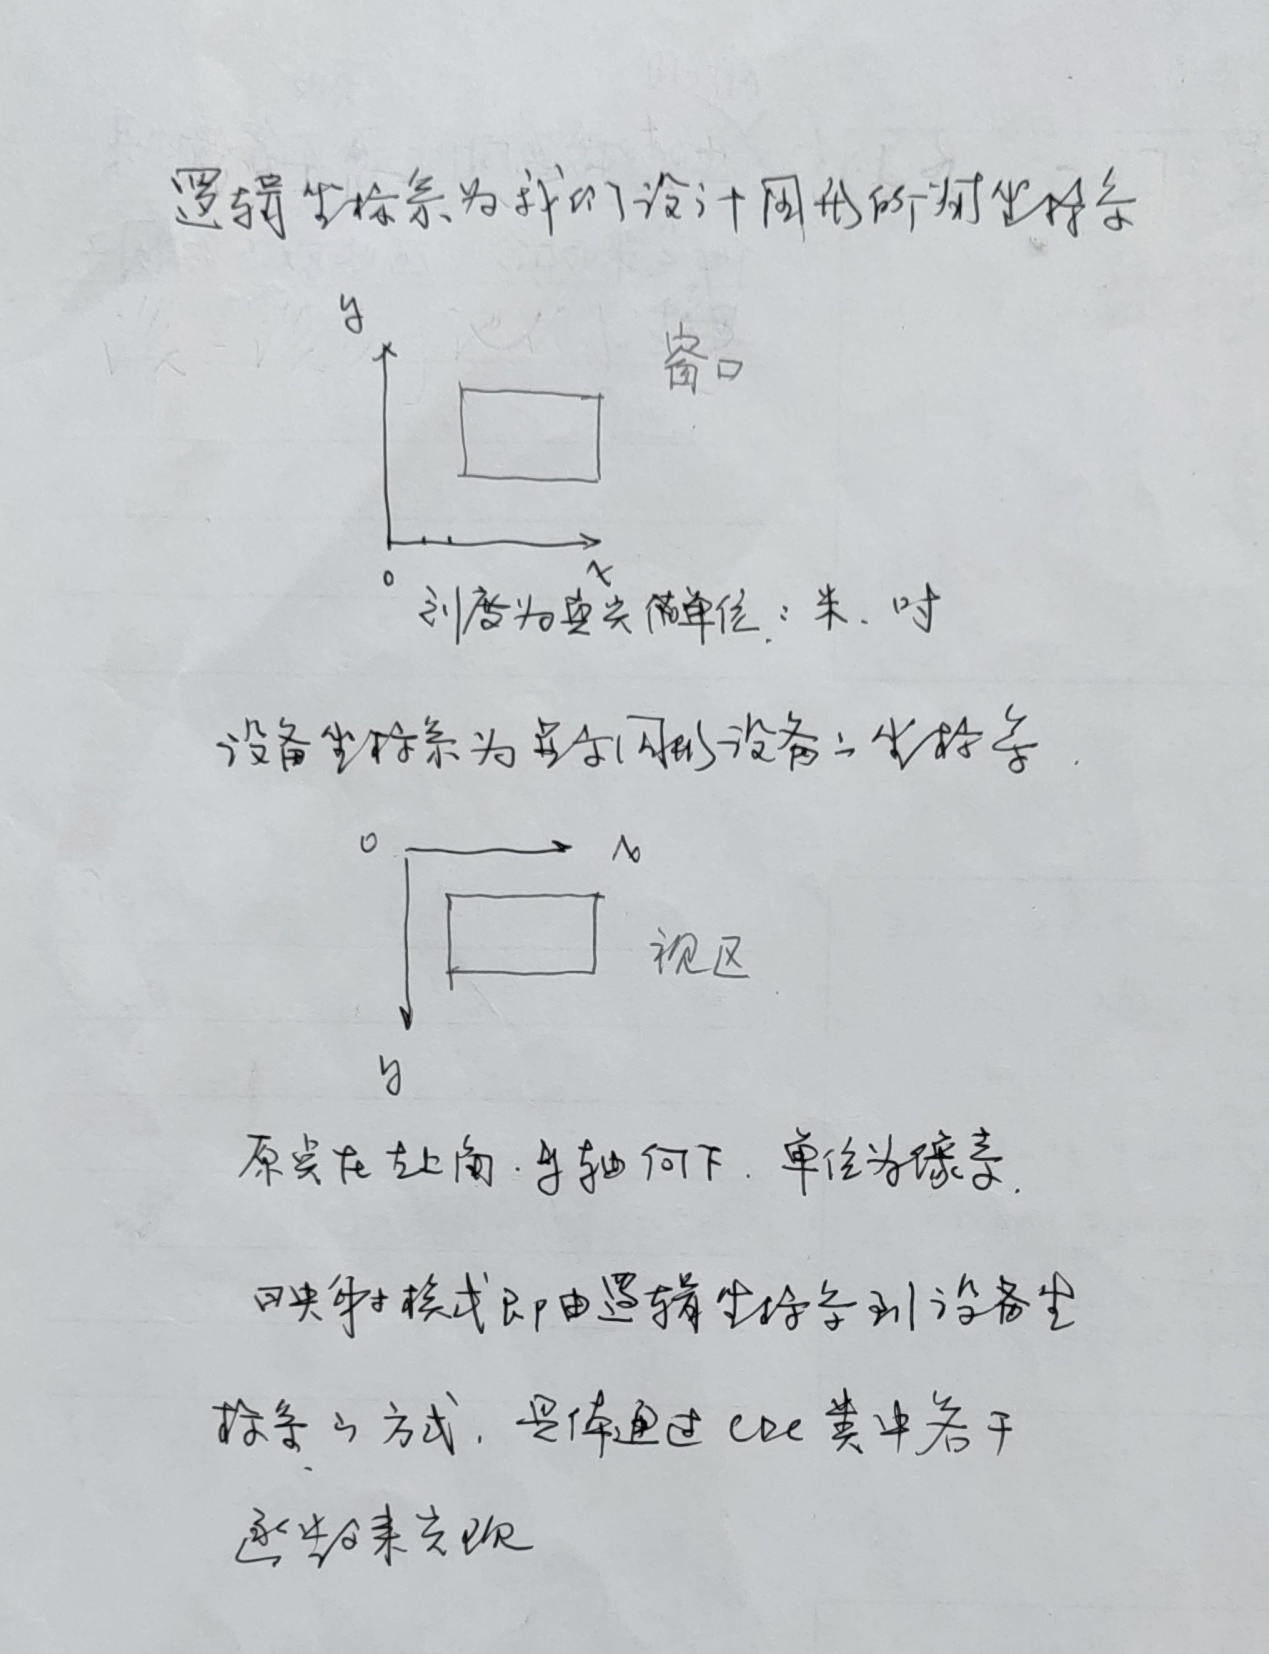 逻辑坐标系为我们设计图形所用坐标系
y
窗口
0
x
刻度为真实值单位：米、吋
设备坐标系为显示图形设备的坐标系.
0
x
视区
y
原点在左上角.y轴向下.单位为像素.
映射模式即由逻辑坐标系到设备坐
标系的方式.具体通过CDC类中若干
函数来实现